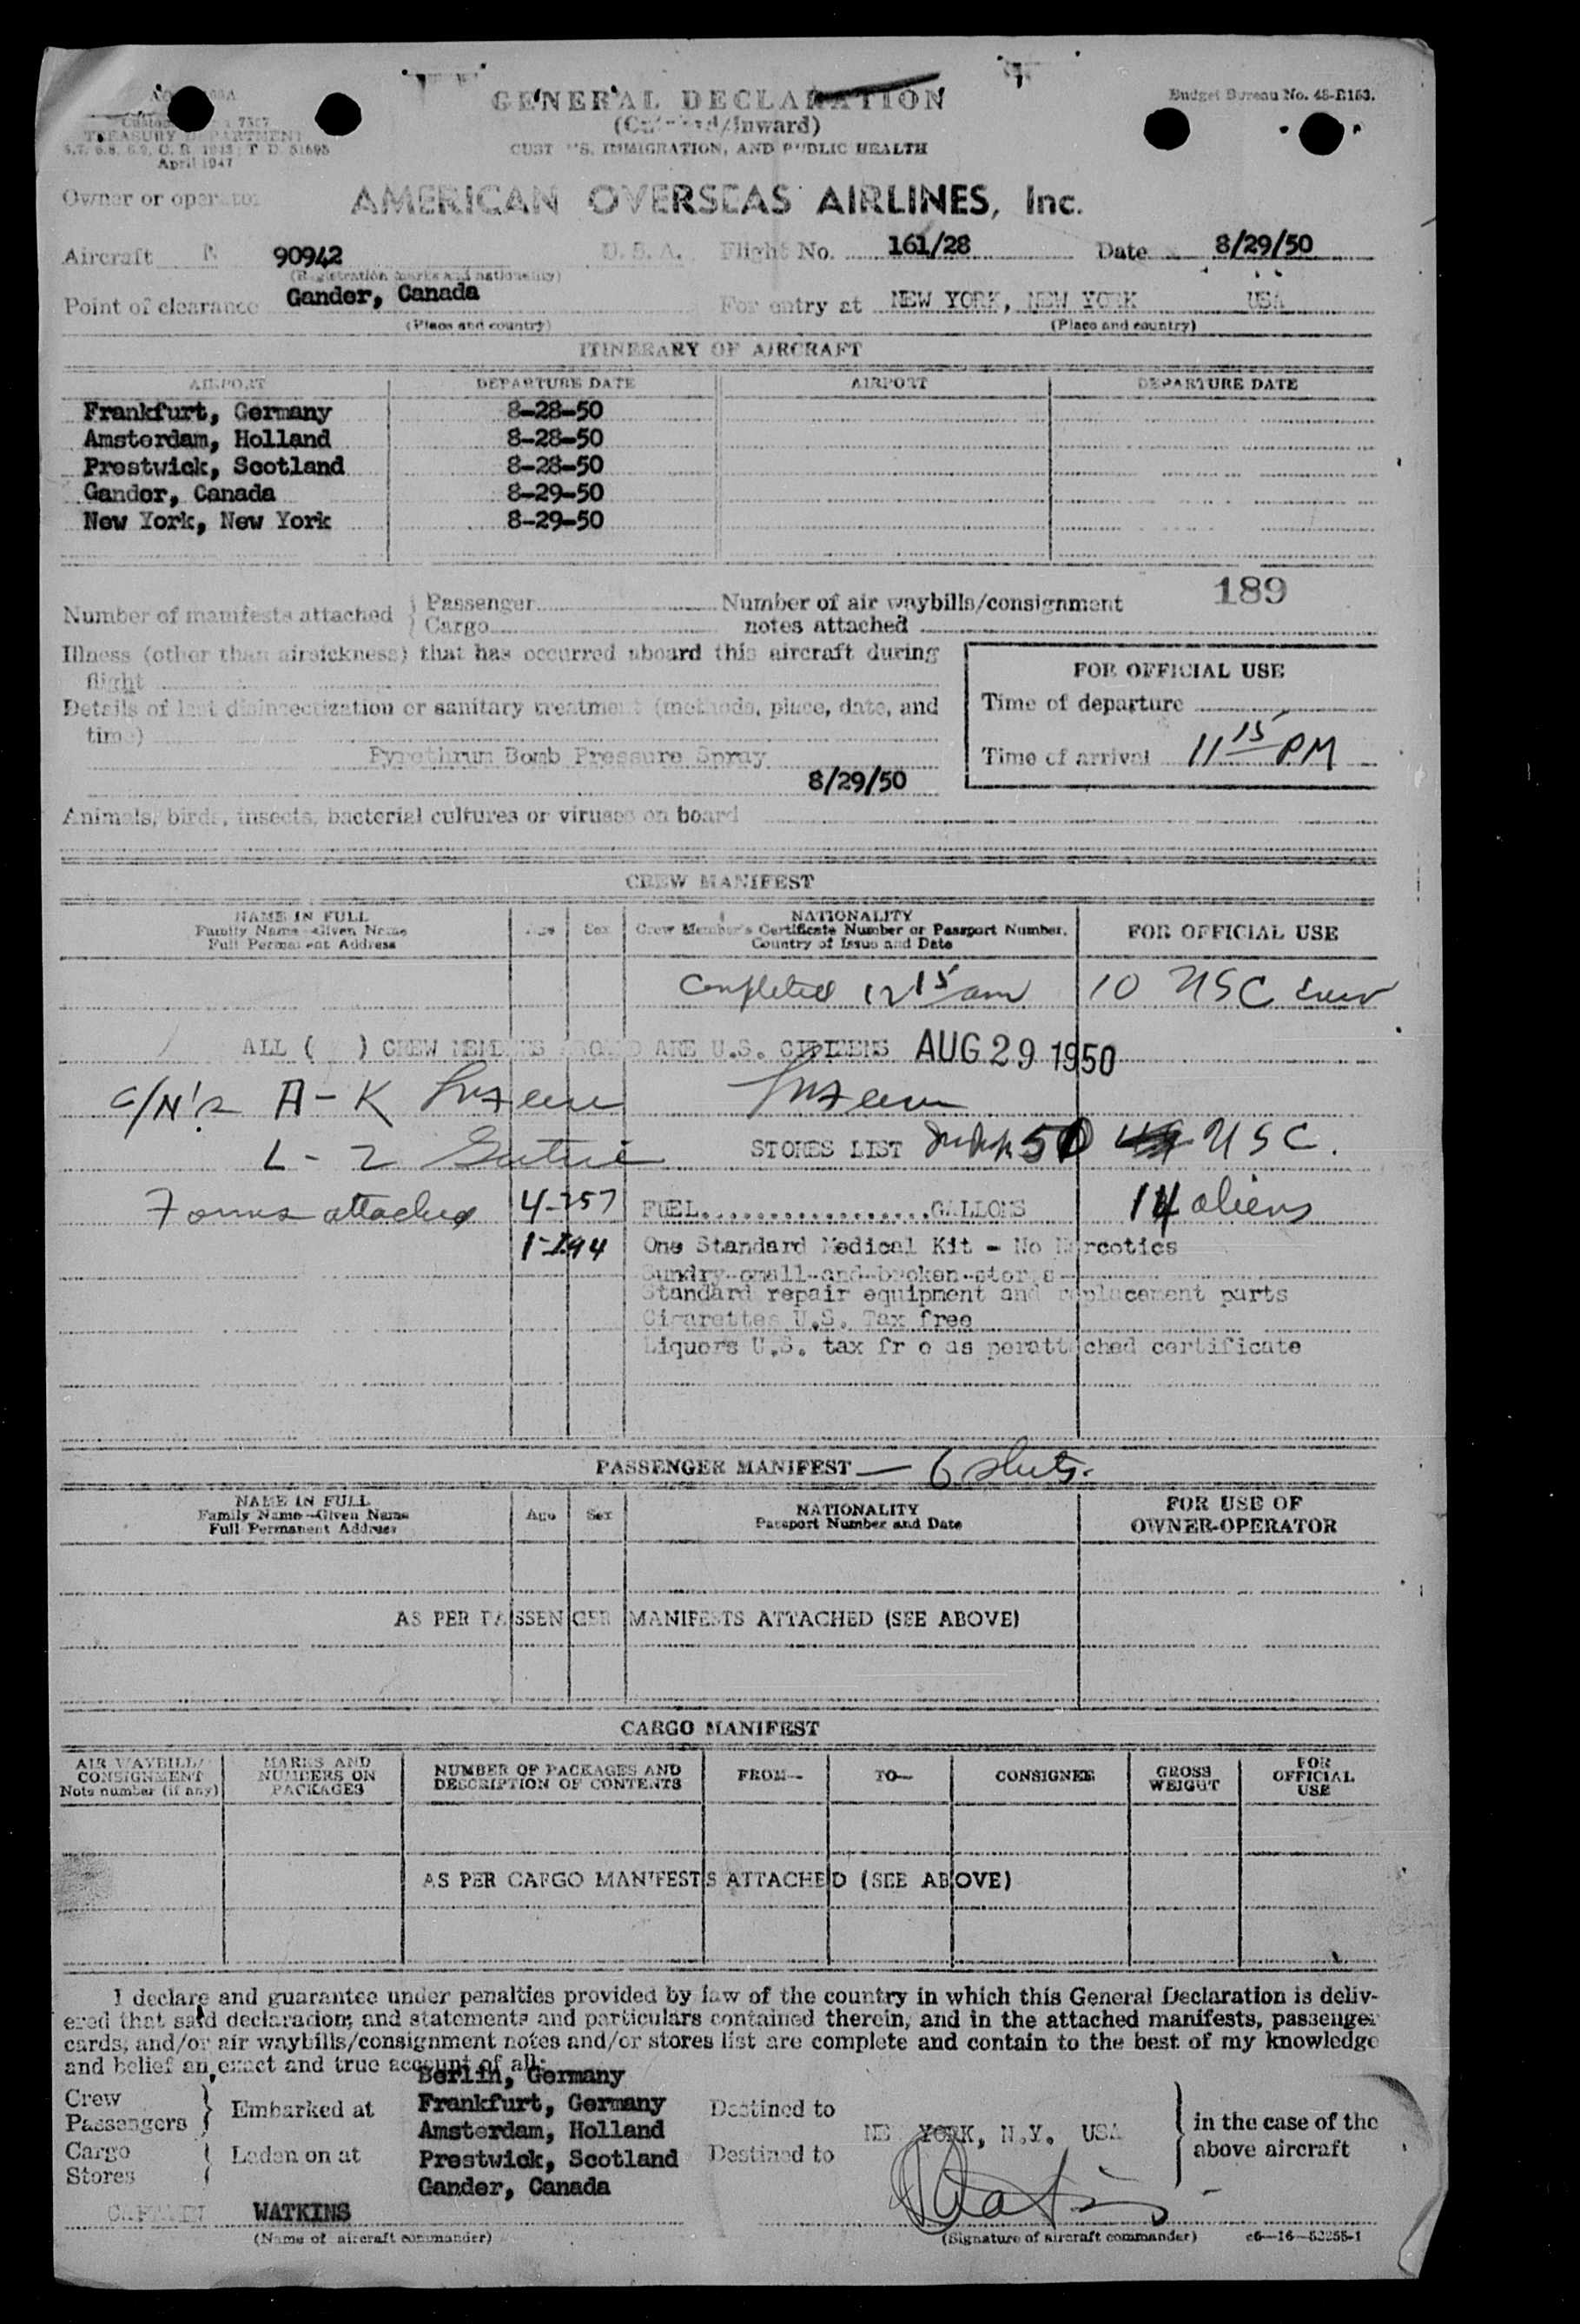 GENERAL DECLARATION
(Outward/Inward)
CUSTOMS, IMMIGRATION, AND PUBLIC HEALTH
Budget Bureau No. 48-R153.
TREASURY DEPARTMENT
April 1947
Owner or operator
AMERICAN OVERSEAS AIRLINES, Inc.
Aircraft N 90942 U.S.A. Flight No. 161/28 Date 8/29/50
(Registration marks and nationality)
Point of clearance Gander, Canada For entry at NEW YORK, NEW YORK USA
(Place and country) (Place and country)
ITINERARY OF AIRCRAFT
AIRPORT DEPARTURE DATE AIRPORT DEPARTURE DATE
Frankfurt, Germany 8-28-50
Amsterdam, Holland 8-28-50
Prestwick, Scotland 8-28-50
Gander, Canada 8-29-50
New York, New York 8-29-50
189
Number of manifests attached { Passenger Number of air waybills/consignment
Cargo notes attached
Illness (other than airsickness) that has occurred aboard this aircraft during
flight
Details of last disinsectization or sanitary treatment (methods, place, date, and
time)
Pyrethrum Bomb Pressure Spray
8/29/50
FOR OFFICIAL USE
Time of departure
Time of arrival 11 15 PM
Animals, birds, insects, bacterial cultures or viruses on board
CREW MANIFEST
NAME IN FULL
Family Name—Given Name
Full Permanent Address
Age Sex
NATIONALITY
Crew Member's Certificate Number or Passport Number,
Country of Issue and Date
FOR OFFICIAL USE
Completed 12 15 am 10 USC crew
ALL ( ) CREW MEMBERS ABOARD ARE U.S. CITIZENS AUG 29 1950
A - K
L - Z
STORES LIST 50 USC.
Forms attached 4-257 FUEL..................GALLONS 14 aliens
1-I94 One Standard Medical Kit - No Narcotics
Sundry small and broken stores
Standard repair equipment and replacement parts
Cigarettes U.S. Tax free
Liquors U.S. tax fr e as perattached certificate
PASSENGER MANIFEST — 6 shts.
NAME IN FULL
Family Name—Given Name
Full Permanent Address
Age Sex
NATIONALITY
Passport Number and Date
FOR USE OF
OWNER-OPERATOR
AS PER PASSENGER MANIFESTS ATTACHED (SEE ABOVE)
CARGO MANIFEST
AIR WAYBILL/
CONSIGNMENT
Note number (if any)
MARKS AND
NUMBERS ON
PACKAGES
NUMBER OF PACKAGES AND
DESCRIPTION OF CONTENTS
FROM— TO— CONSIGNEE
GROSS
WEIGHT
FOR
OFFICIAL
USE
AS PER CARGO MANIFESTS ATTACHED (SEE ABOVE)
I declare and guarantee under penalties provided by law of the country in which this General Declaration is deliv-
ered that said declaration; and statements and particulars contained therein, and in the attached manifests, passenger
cards, and/or air waybills/consignment notes and/or stores list are complete and contain to the best of my knowledge
and belief an exact and true account of all:
Berlin, Germany
Crew
Passengers } Embarked at Frankfurt, Germany Destined to
Amsterdam, Holland NEW YORK, N.Y. USA } in the case of the
Cargo
Stores } Laden on at Prestwick, Scotland Destined to above aircraft
Gander, Canada
CAPTAIN WATKINS Watkins
(Name of aircraft commander) (Signature of aircraft commander) c6—16—52255-1